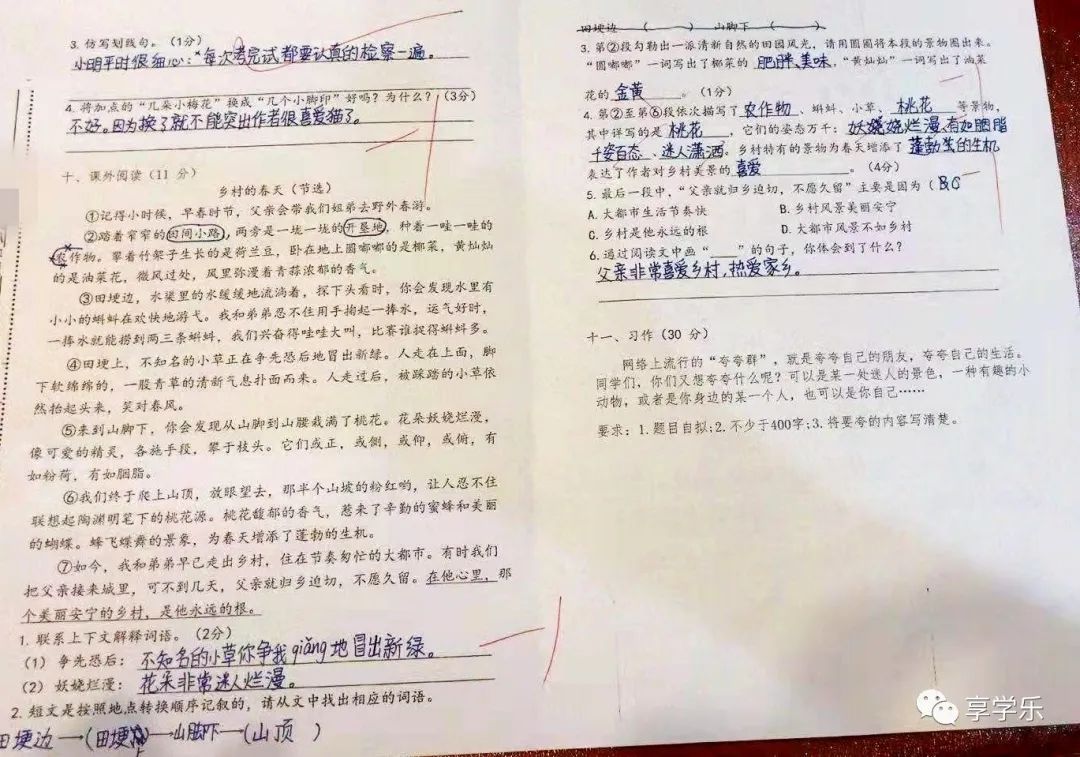 3. 仿写划线句。(1分)
小明平时很细心：每次考完试都要认真的检察一遍。
4. 将加点的“几朵小梅花”换成“几个小脚印”好吗？为什么？(3分)
不好。因为换了就不能突出作者很喜爱猫了。
十、课外阅读(11 分)
乡村的春天（节选）
①记得小时候，早春时节，父亲会带我们姐弟去野外春游。
②踏着窄窄的田间小路，两旁是一垅一垅的开垦地，种着一畦一畦的
农作物。攀着竹架子生长的是荷兰豆，卧在地上圆嘟嘟的是椰菜，黄灿灿
的是油菜花，微风过处，风里弥漫着青蒜浓郁的香气。
③田埂边，水渠里的水缓缓地流淌着，探下头看时，你会发现水里有
小小的蝌蚪在欢快地游弋。我和弟弟忍不住用手掬起一捧水，运气好时，
一捧水就能捞到两三条蝌蚪，我们兴奋得哇哇大叫，比赛谁捉得蝌蚪多。
④田埂上，不知名的小草正在争先恐后地冒出新绿。人走在上面，脚
下软绵绵的，一股青草的清新气息扑面而来。人走过后，被踩踏的小草依
然抬起头来，笑对春风。
⑤来到山脚下，你会发现从山脚到山腰栽满了桃花。花朵妖娆烂漫，
像可爱的精灵，各施手段，攀于枝头。它们或正，或侧，或仰，或俯，有
如粉荷，有如胭脂。
⑥我们终于爬上山顶，放眼望去，那半个山坡的粉红哟，让人忍不住
联想起陶渊明笔下的桃花源。桃花馥郁的香气，惹来了辛勤的蜜蜂和美丽
的蝴蝶。蜂飞蝶舞的景象，为春天增添了蓬勃的生机。
⑦如今，我和弟弟早已走出乡村，住在节奏匆忙的大都市。有时我们
把父亲接来城里，可不到几天，父亲就归乡迫切，不愿久留。在他心里，那
个美丽安宁的乡村，是他永远的根。
1. 联系上下文解释词语。(2分)
(1) 争先恐后：不知名的小草你争我qiǎng地冒出新绿。
(2) 妖娆烂漫：花朵非常迷人烂漫。
2. 短文是按照地点转换顺序记叙的，请从文中找出相应的词语。
田埂边→(田埂)→山脚下→(山顶)
田埂边 ( ) 山脚下 ( )
3. 第②段勾勒出一派清新自然的田园风光，请用圆圈将本段的景物圈出来。
“圆嘟嘟”一词写出了椰菜的 肥胖、美味，“黄灿灿”一词写出了油菜
花的 金黄 。(1分)
4. 第②至第⑥段依次描写了 农作物 、蝌蚪、小草、 桃花 等景物，
其中详写的是 桃花 ，它们的姿态万千：妖娆烂漫、有如胭脂
千姿百态 、迷人潇洒。乡村特有的景物为春天增添了 蓬勃的生机
表达了作者对乡村美景的 喜爱 。(4分)
5. 最后一段中，“父亲就归乡迫切，不愿久留”主要是因为（ BC
A. 大都市生活节奏快 B. 乡村风景美丽安宁
C. 乡村是他永远的根 D. 大都市风景不如乡村
6. 通过阅读文中画“____”的句子，你体会到了什么？
父亲非常喜爱乡村，热爱家乡。
十一、习作(30 分)
网络上流行的“夸夸群”，就是夸夸自己的朋友，夸夸自己的生活。
同学们，你们又想夸夸什么呢？可以是某一处迷人的景色，一种有趣的小
动物，或者是你身边的某一个人，也可以是你自己……
要求：1. 题目自拟；2. 不少于400字；3. 将要夸的内容写清楚。
享学乐